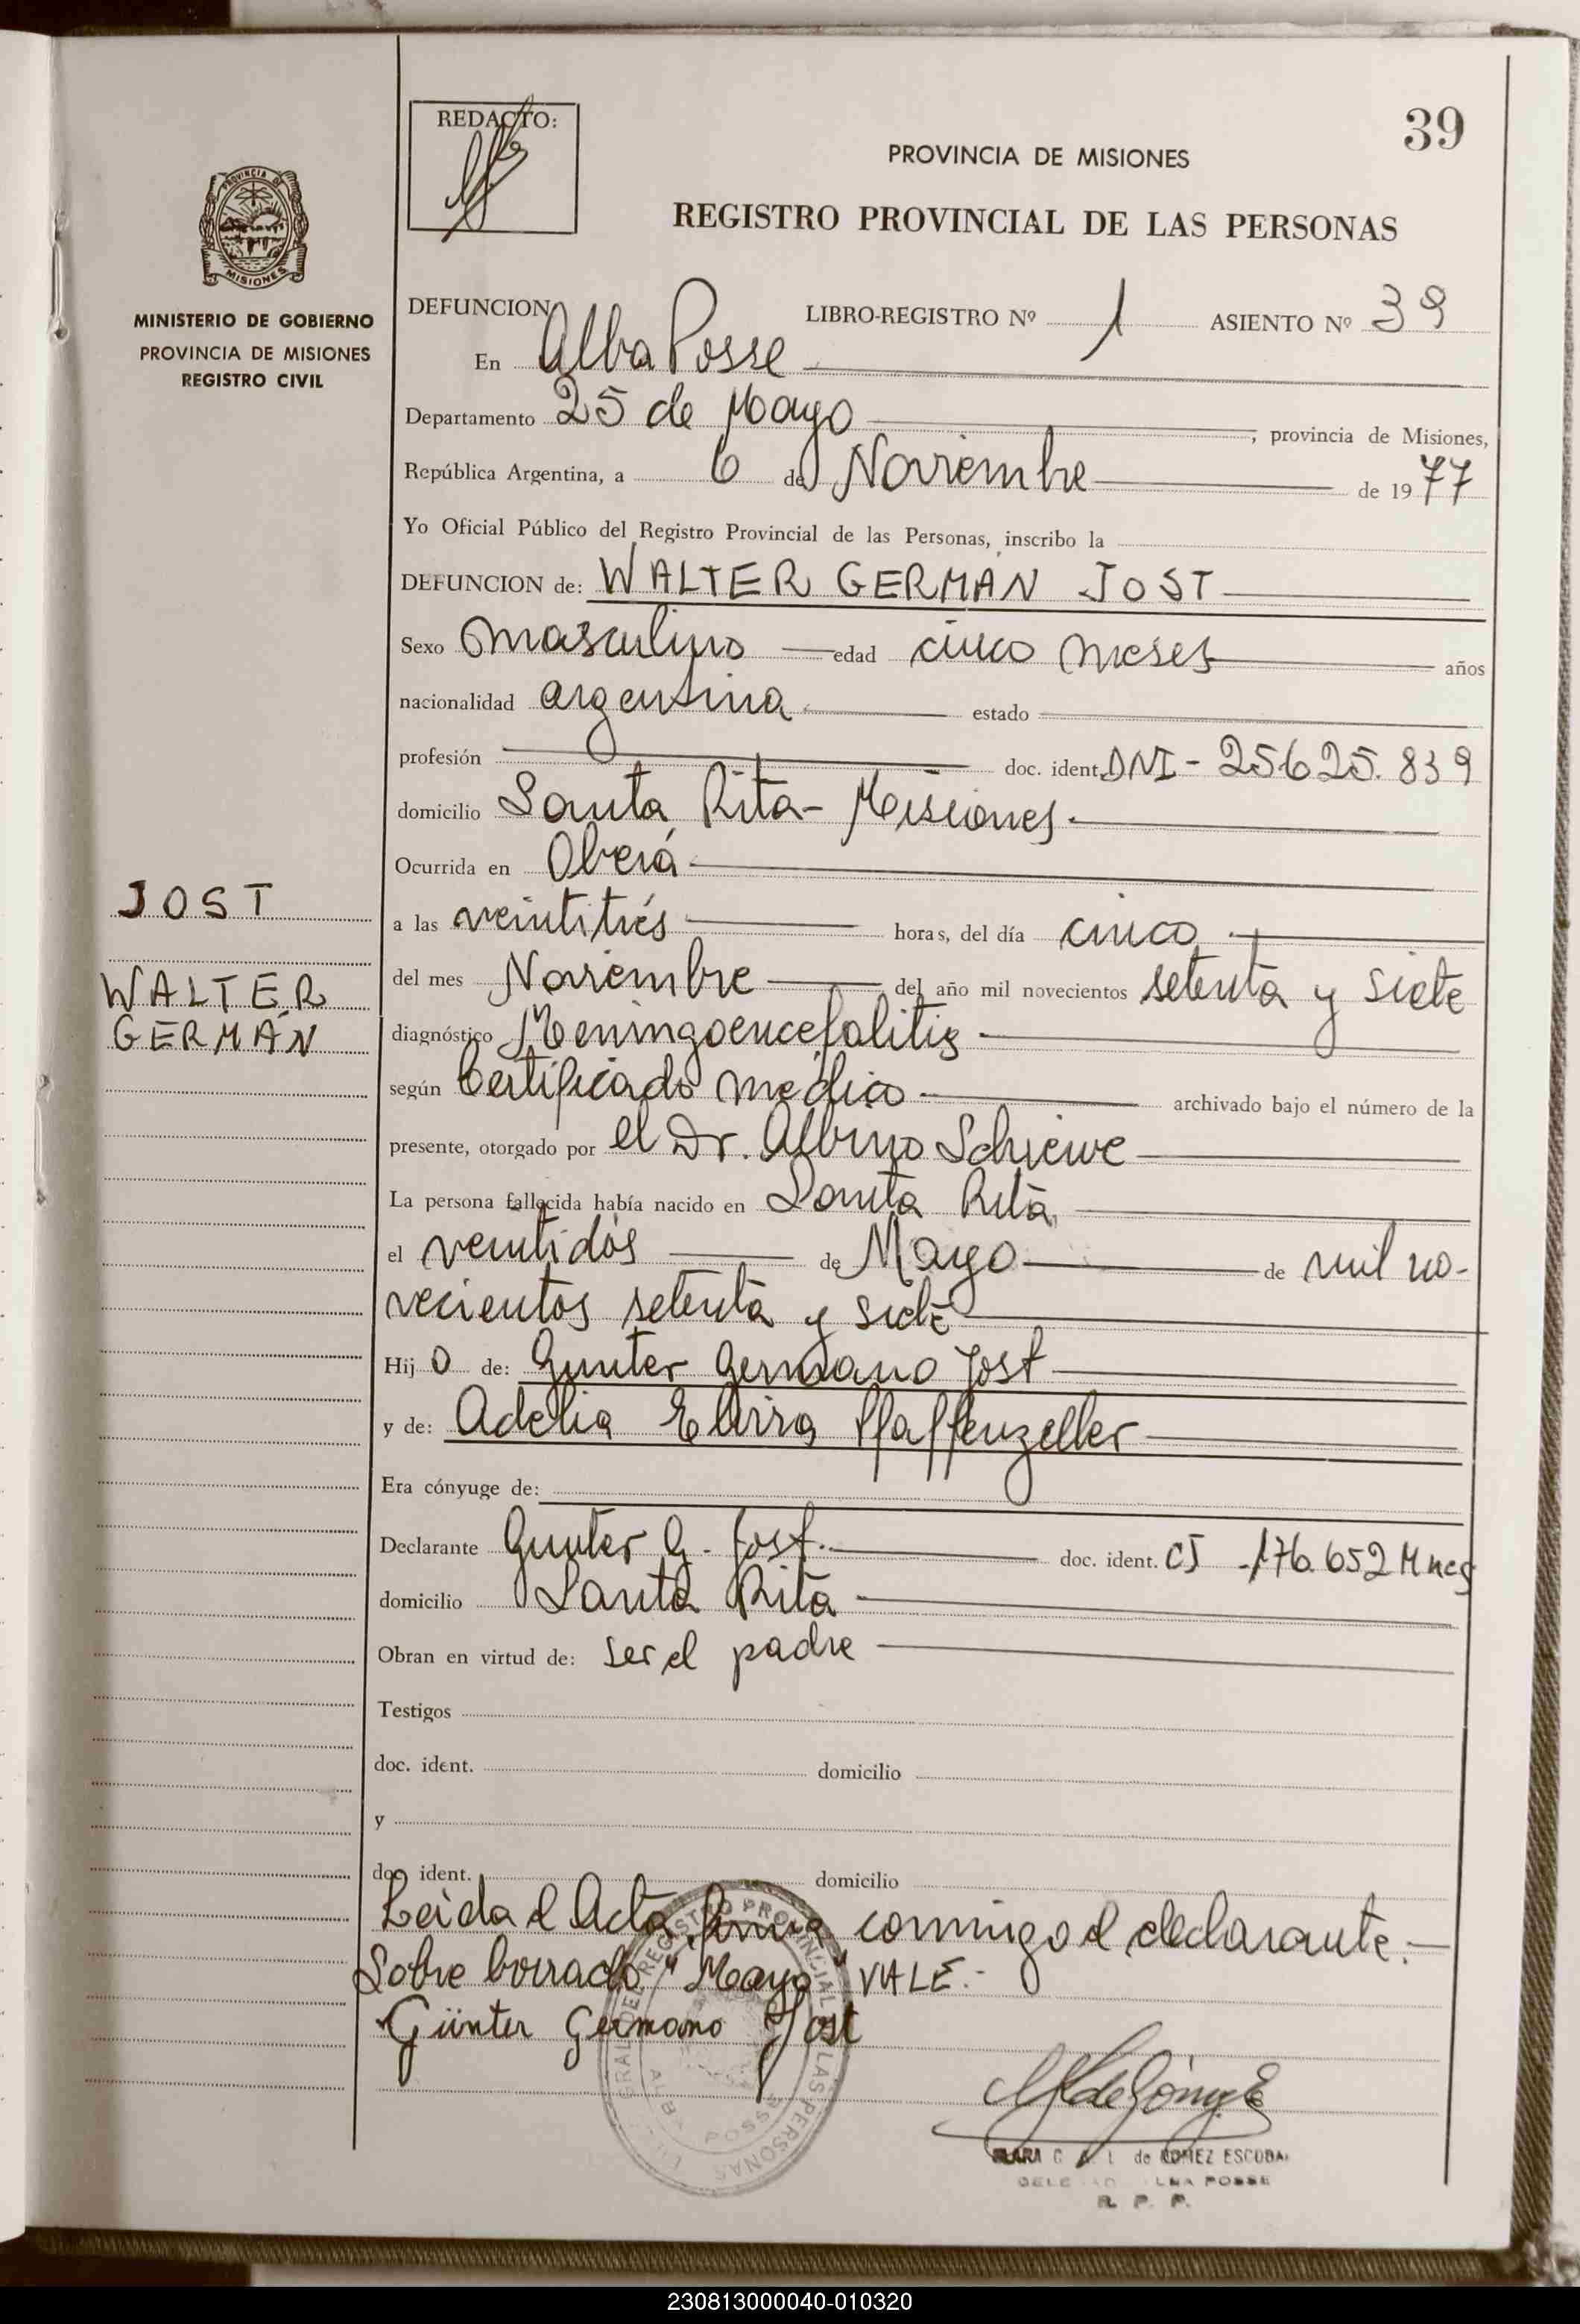 39
REDACTO:
PROVINCIA DE MISIONES
REGISTRO PROVINCIAL DE LAS PERSONAS
PROVINCIA DE
MISIONES
MINISTERIO DE GOBIERNO
PROVINCIA DE MISIONES
REGISTRO CIVIL
DEFUNCION LIBRO-REGISTRO Nº 1 ASIENTO Nº 39
En Alba Posse
Departamento 25 de Mayo, provincia de Misiones,
República Argentina, a 6 de Noviembre de 1977
Yo Oficial Público del Registro Provincial de las Personas, inscribo la
DEFUNCION de: WALTER GERMÁN JOST
Sexo masculino edad cinco meses años
nacionalidad argentina estado
profesión doc. ident. DNI - 25625.839
domicilio Santa Rita - Misiones.
Ocurrida en Oberá
a las veintitrés horas, del día cinco
del mes Noviembre del año mil novecientos setenta y siete
diagnóstico Meningoencefalitis
según Certificado médico archivado bajo el número de la
presente, otorgado por el Dr. Albino Schiewe
La persona fallecida había nacido en Santa Rita,
el veintidós de Mayo de mil no-
vecientos setenta y siete
Hijo de: Gunter Germano Jost
y de: Adelia Elvira Pfaffenzeller
Era cónyuge de:
Declarante Gunter G. Jost. doc. ident. CI - 176.652 Mnes
domicilio Santa Rita
Obran en virtud de: ser el padre
Testigos
doc. ident. domicilio
y
doc ident. domicilio
Leída el Acta, firma conmigo el declarante.-
Sobre borrado "Mayo" VALE.-
Günter Germano Jost
JOST
WALTER
GERMÁN
GRAL DEL REGISTRO PROVINCIAL LAS PERSONAS
ALBA POSSE
de GOMEZ ESCOBA
R. P. P.
230813000040-010320